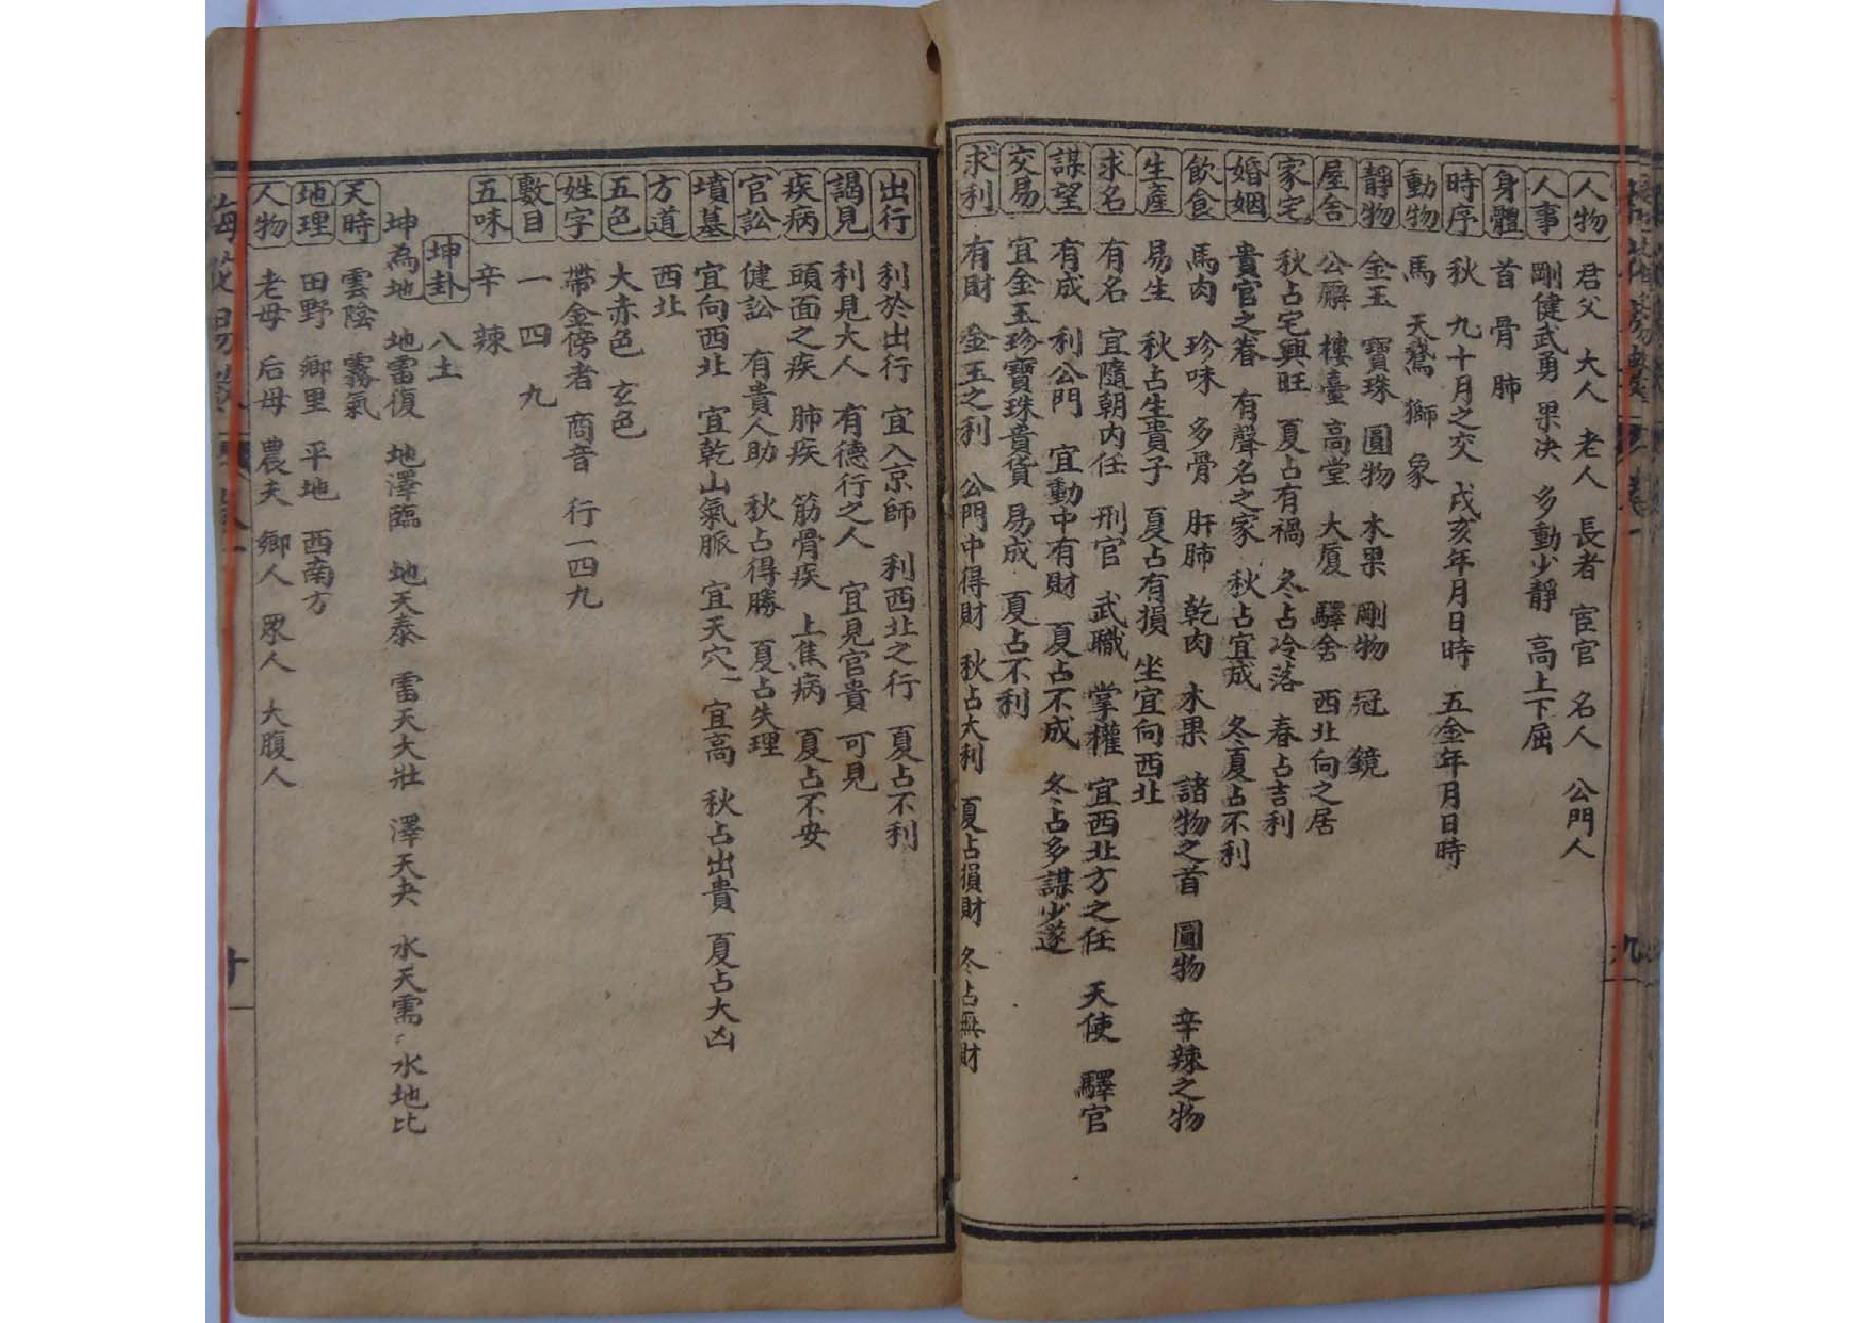 人物 君父 大人 老人 長者 宦官 名人 公門人
人事 剛健武勇 果决 多動少靜 高上下屈
身體 首 骨 肺
時序 秋 九十月之交 戌亥年月日時 五金年月日時
動物 馬 天鵞 獅 象
靜物 金玉 寶珠 圓物 木果 剛物 冠 鏡
屋舍 公廨 樓臺 高堂 大厦 驛舍 西北向之居
家宅 秋占宅興旺 夏占有禍 冬占冷落 春占吉利
婚姻 貴官之眷 有聲名之家 秋占宜成 冬夏占不利
飲食 馬肉 珍味 多骨 肝肺 乾肉 木果 諸物之首 圓物 辛辣之物
生產 易生 秋占生貴子 夏占有損 坐宜向西北
求名 有名 宜隨朝内任 刑官 武職 掌權 宜西北方之任 天使 驛官
謀望 有成 利公門 宜動中有財 夏占不成 冬占多謀少遂
交易 宜金玉珍寶珠貴貨 易成 夏占不利
求利 有財 金玉之利 公門中得財 秋占大利 夏占損財 冬占無財
九
出行 利於出行 宜入京師 利西北之行 夏占不利
謁見 利見大人 有德行之人 宜見官貴 可見
疾病 頭面之疾 肺疾 筋骨疾 上焦病 夏占不安
官訟 健訟 有貴人助 秋占得勝 夏占失理
墳墓 宜向西北 宜乾山氣脈 宜天穴 宜高 秋占出貴 夏占大凶
方道 西北
五色 大赤色 玄色
姓字 帶金傍者 商音 行一四九
數目 一 四 九
五味 辛 辣
坤卦 八土
坤為地 地雷復 地澤臨 地天泰 雷天大壯 澤天夬 水天需 水地比
天時 雲陰 霧氣
地理 田野 鄉里 平地 西南方
人物 老母 后母 農夫 鄉人 眾人 大腹人
十